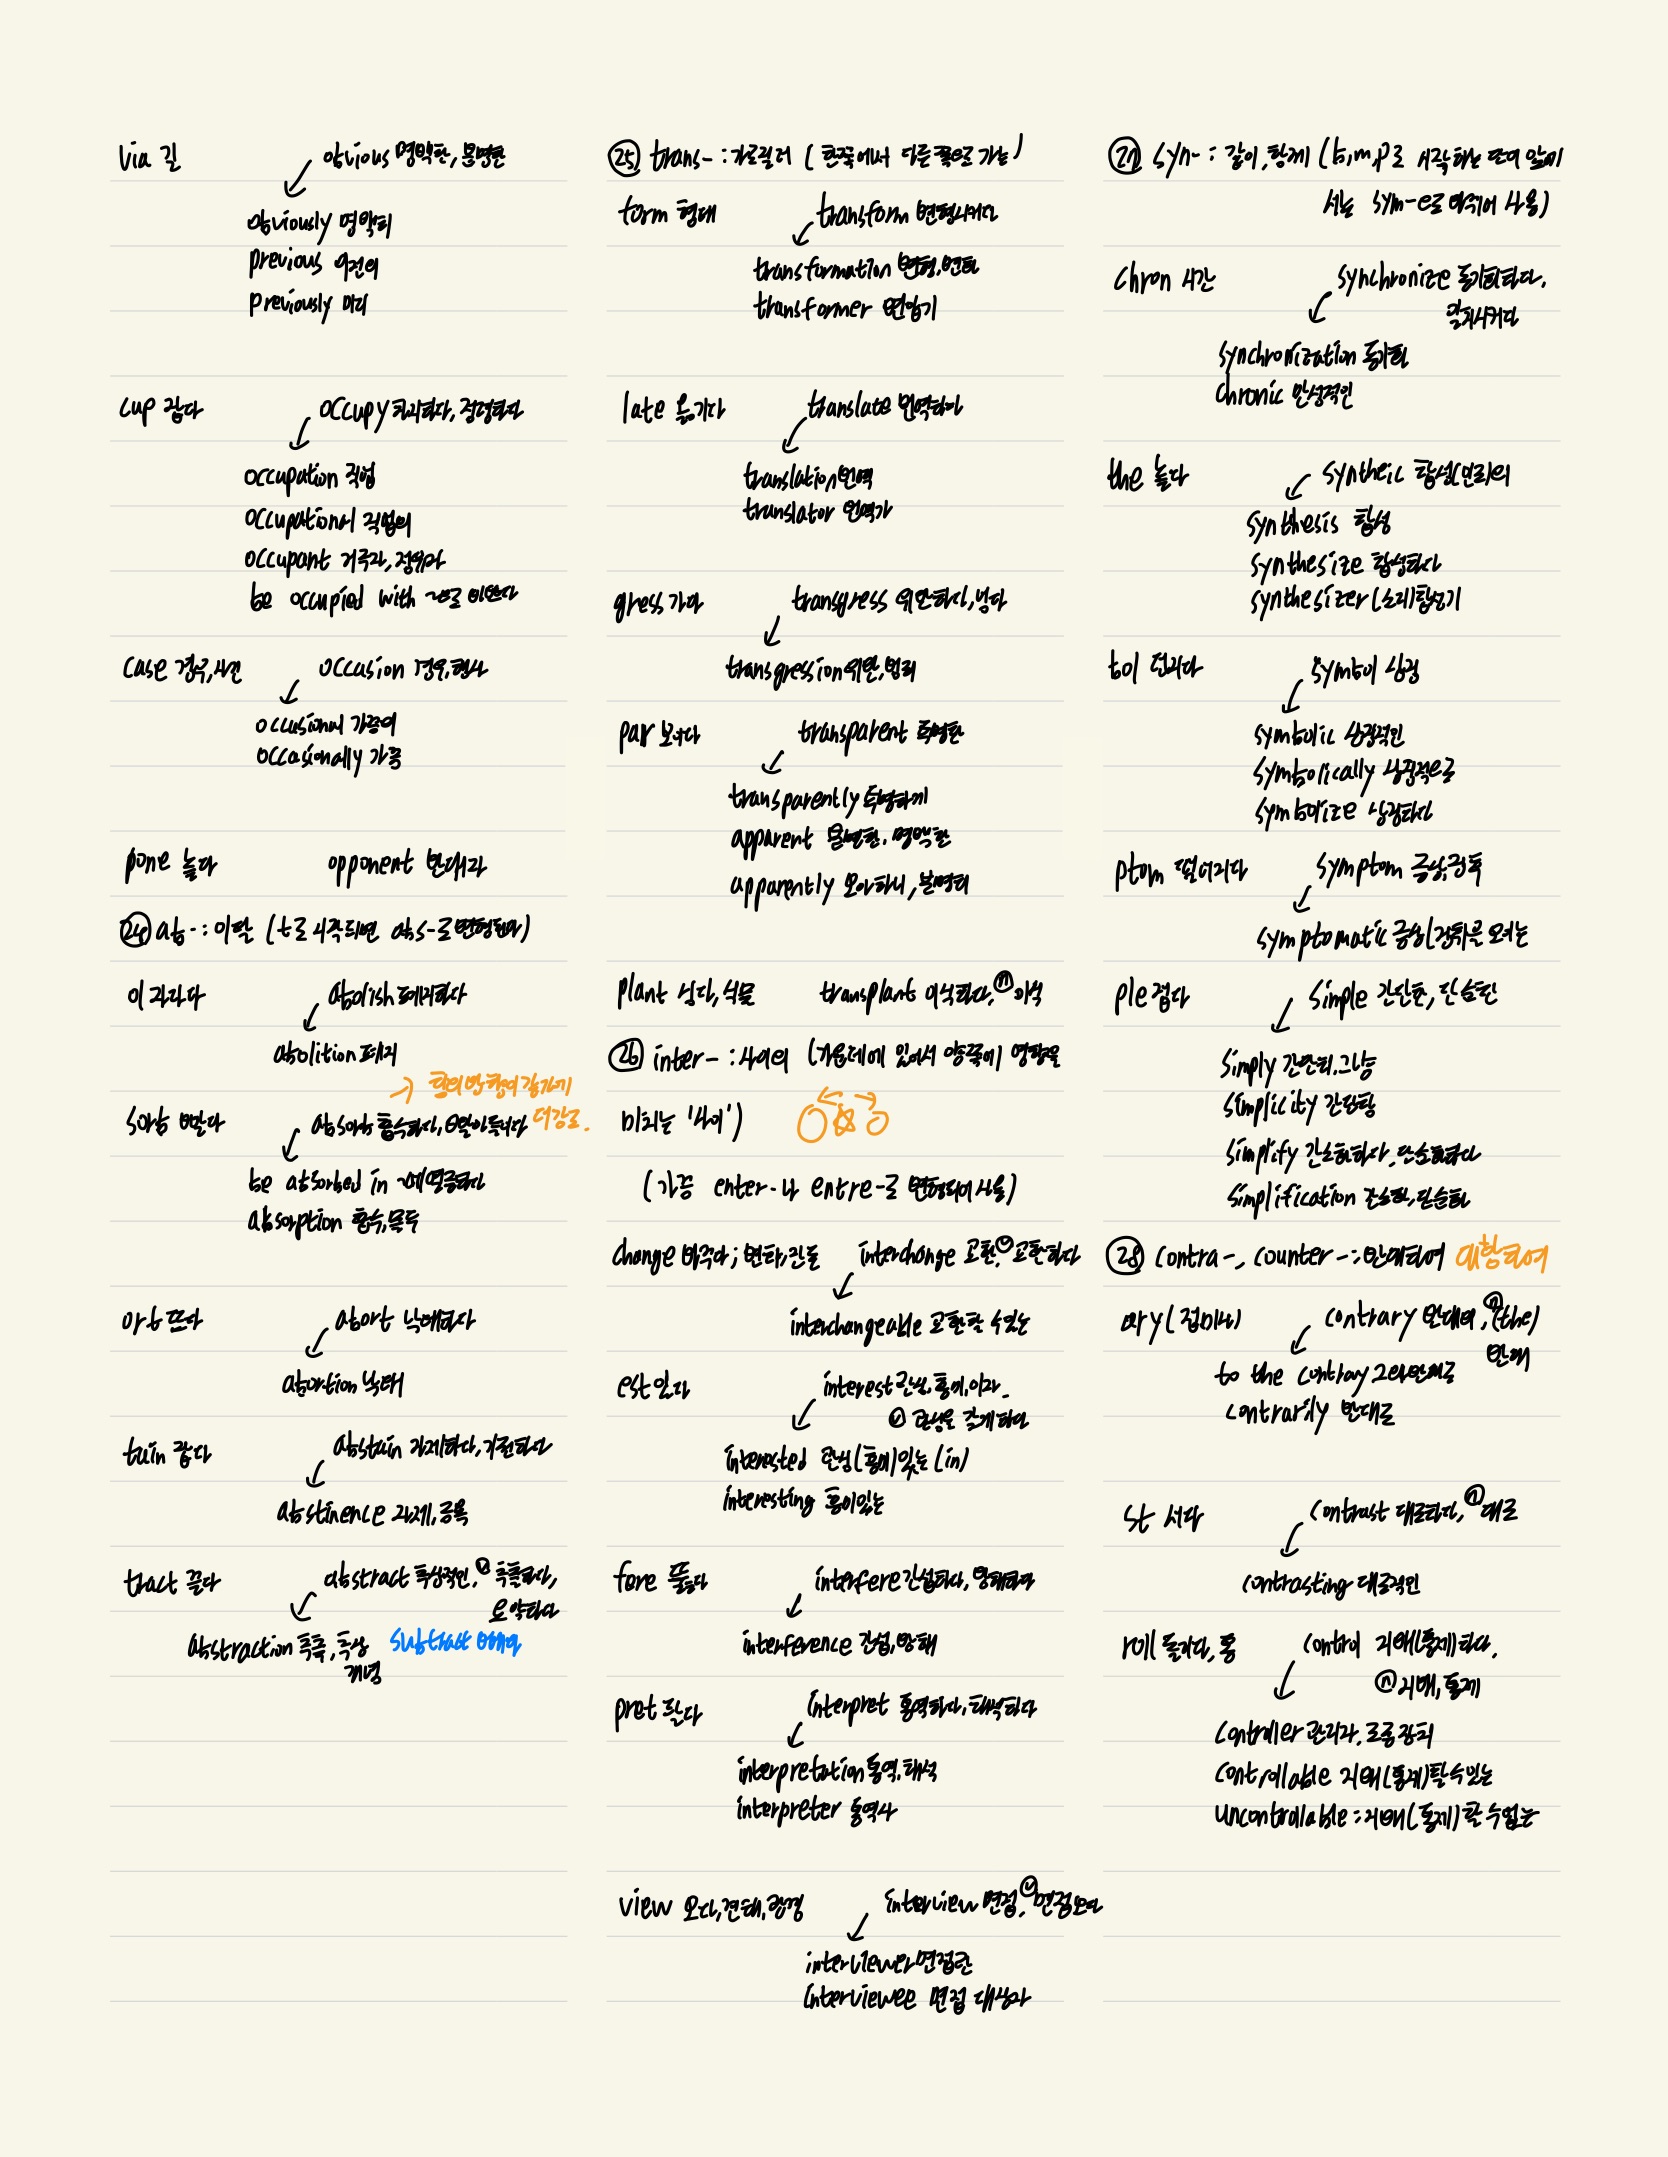 via 길 obvious 명백한, 분명한
obviously 명백히
previous 이전의
previously 미리
cup 잡다 occupy 차지하다, 점령하다
occupation 직업
occupational 직업의
occupant 거주자, 점유자
be occupied with ~로 바쁘다
case 경우, 사건 occasion 경우, 행사
occasional 가끔의
occasionally 가끔
pone 놓다 opponent 반대자
㉔ ab- : 이탈 (t로 시작되면 abs-로 변형된다)
ol 자라다 abolish 폐지하다
abolition 폐지
→ 힘의 방향이 같기에
더강조.
sorb 빨다 absorb 흡수하다, 빨아들이다
be absorbed in ~에 열중하다
absorption 흡수, 몰두
ort 뜨다 abort 낙태하다
abortion 낙태
tain 잡다 abstain 자제하다, 기권하다
abstinence 자제, 금욕
tract 끌다 abstract 추상적인, ⓥ 추출하다,
요약하다
abstraction 추출, 추상 subtract 빼다
개념
㉕ trans- : 가로질러 (한쪽에서 다른 쪽으로 가는)
form 형태 transform 변형시키다
transformation 변형, 변화
transformer 변압기
late 옮기다 translate 번역하다
translation 번역
translator 번역가
gress 가다 transgress 위반하다, 넘다
transgression 위반, 범죄
par 보이다 transparent 투명한
transparently 투명하게
apparent 분명한, 명백한
apparently 보아하니, 분명히
plant 심다, 식물 transplant 이식하다, ⓝ 이식
㉖ inter- : 사이의 (가운데에 있어서 양쪽에 영향을
미치는 '사이')
(가끔 enter-나 entre-로 변형되어 사용)
change 바꾸다; 변화, 잔돈 interchange 교환, ⓥ 교환하다
interchangeable 교환할 수있는
est 있다 interest 관심, 흥미, 이자.
ⓥ 관심을 갖게하다
interested 관심(흥미)있는 (in)
interesting 흥미있는
fere 뚫다 interfere 간섭하다, 방해하다
interference 간섭, 방해
pret 팔다 interpret 통역하다, 해석하다
interpretation 통역, 해석
interpreter 통역사
view 보다, 견해, 광경 interview 면접, ⓥ 면접보다
interviewer 면접관
interviewee 면접 대상자
㉗ syn- : 같이, 함께 (b, m, p로 시작하는 단어 앞에
서는 sym-으로 바뀌어 사용)
chron 시간 synchronize 동기화하다,
일치시키다
synchronization 동기화
chronic 만성적인
the 놓다 syntheic 합성(인조)의
synthesis 합성
synthesize 합성하다
synthesizer (소리)합성기
bol 던지다 symbol 상징
symbolic 상징적인
symbolically 상징적으로
symbolize 상징하다
ptom 떨어지다 symptom 증상, 징후
symptomatic 증상(징후)을 보이는
ple 접다 simple 간단한, 단순한
simply 간단히, 그냥
simplicity 간단함
simplify 간소화하다, 단순화하다
simplification 간소화, 단순화
㉘ contra-, counter- : 반대하여 대항하여
ary (접미사) contrary 반대의, ⓝ (the)
반대
to the contray 그와반대로
contrarily 반대로
st 서다 contrast 대조하다, ⓝ 대조
contrasting 대조적인
roll 돌리다, 통 control 지배(통제)하다,
ⓝ 지배, 통제
controller 관리자, 조종 장치
controllable 지배(통제)할수있는
uncontrolable : 지배(통제)할 수없는